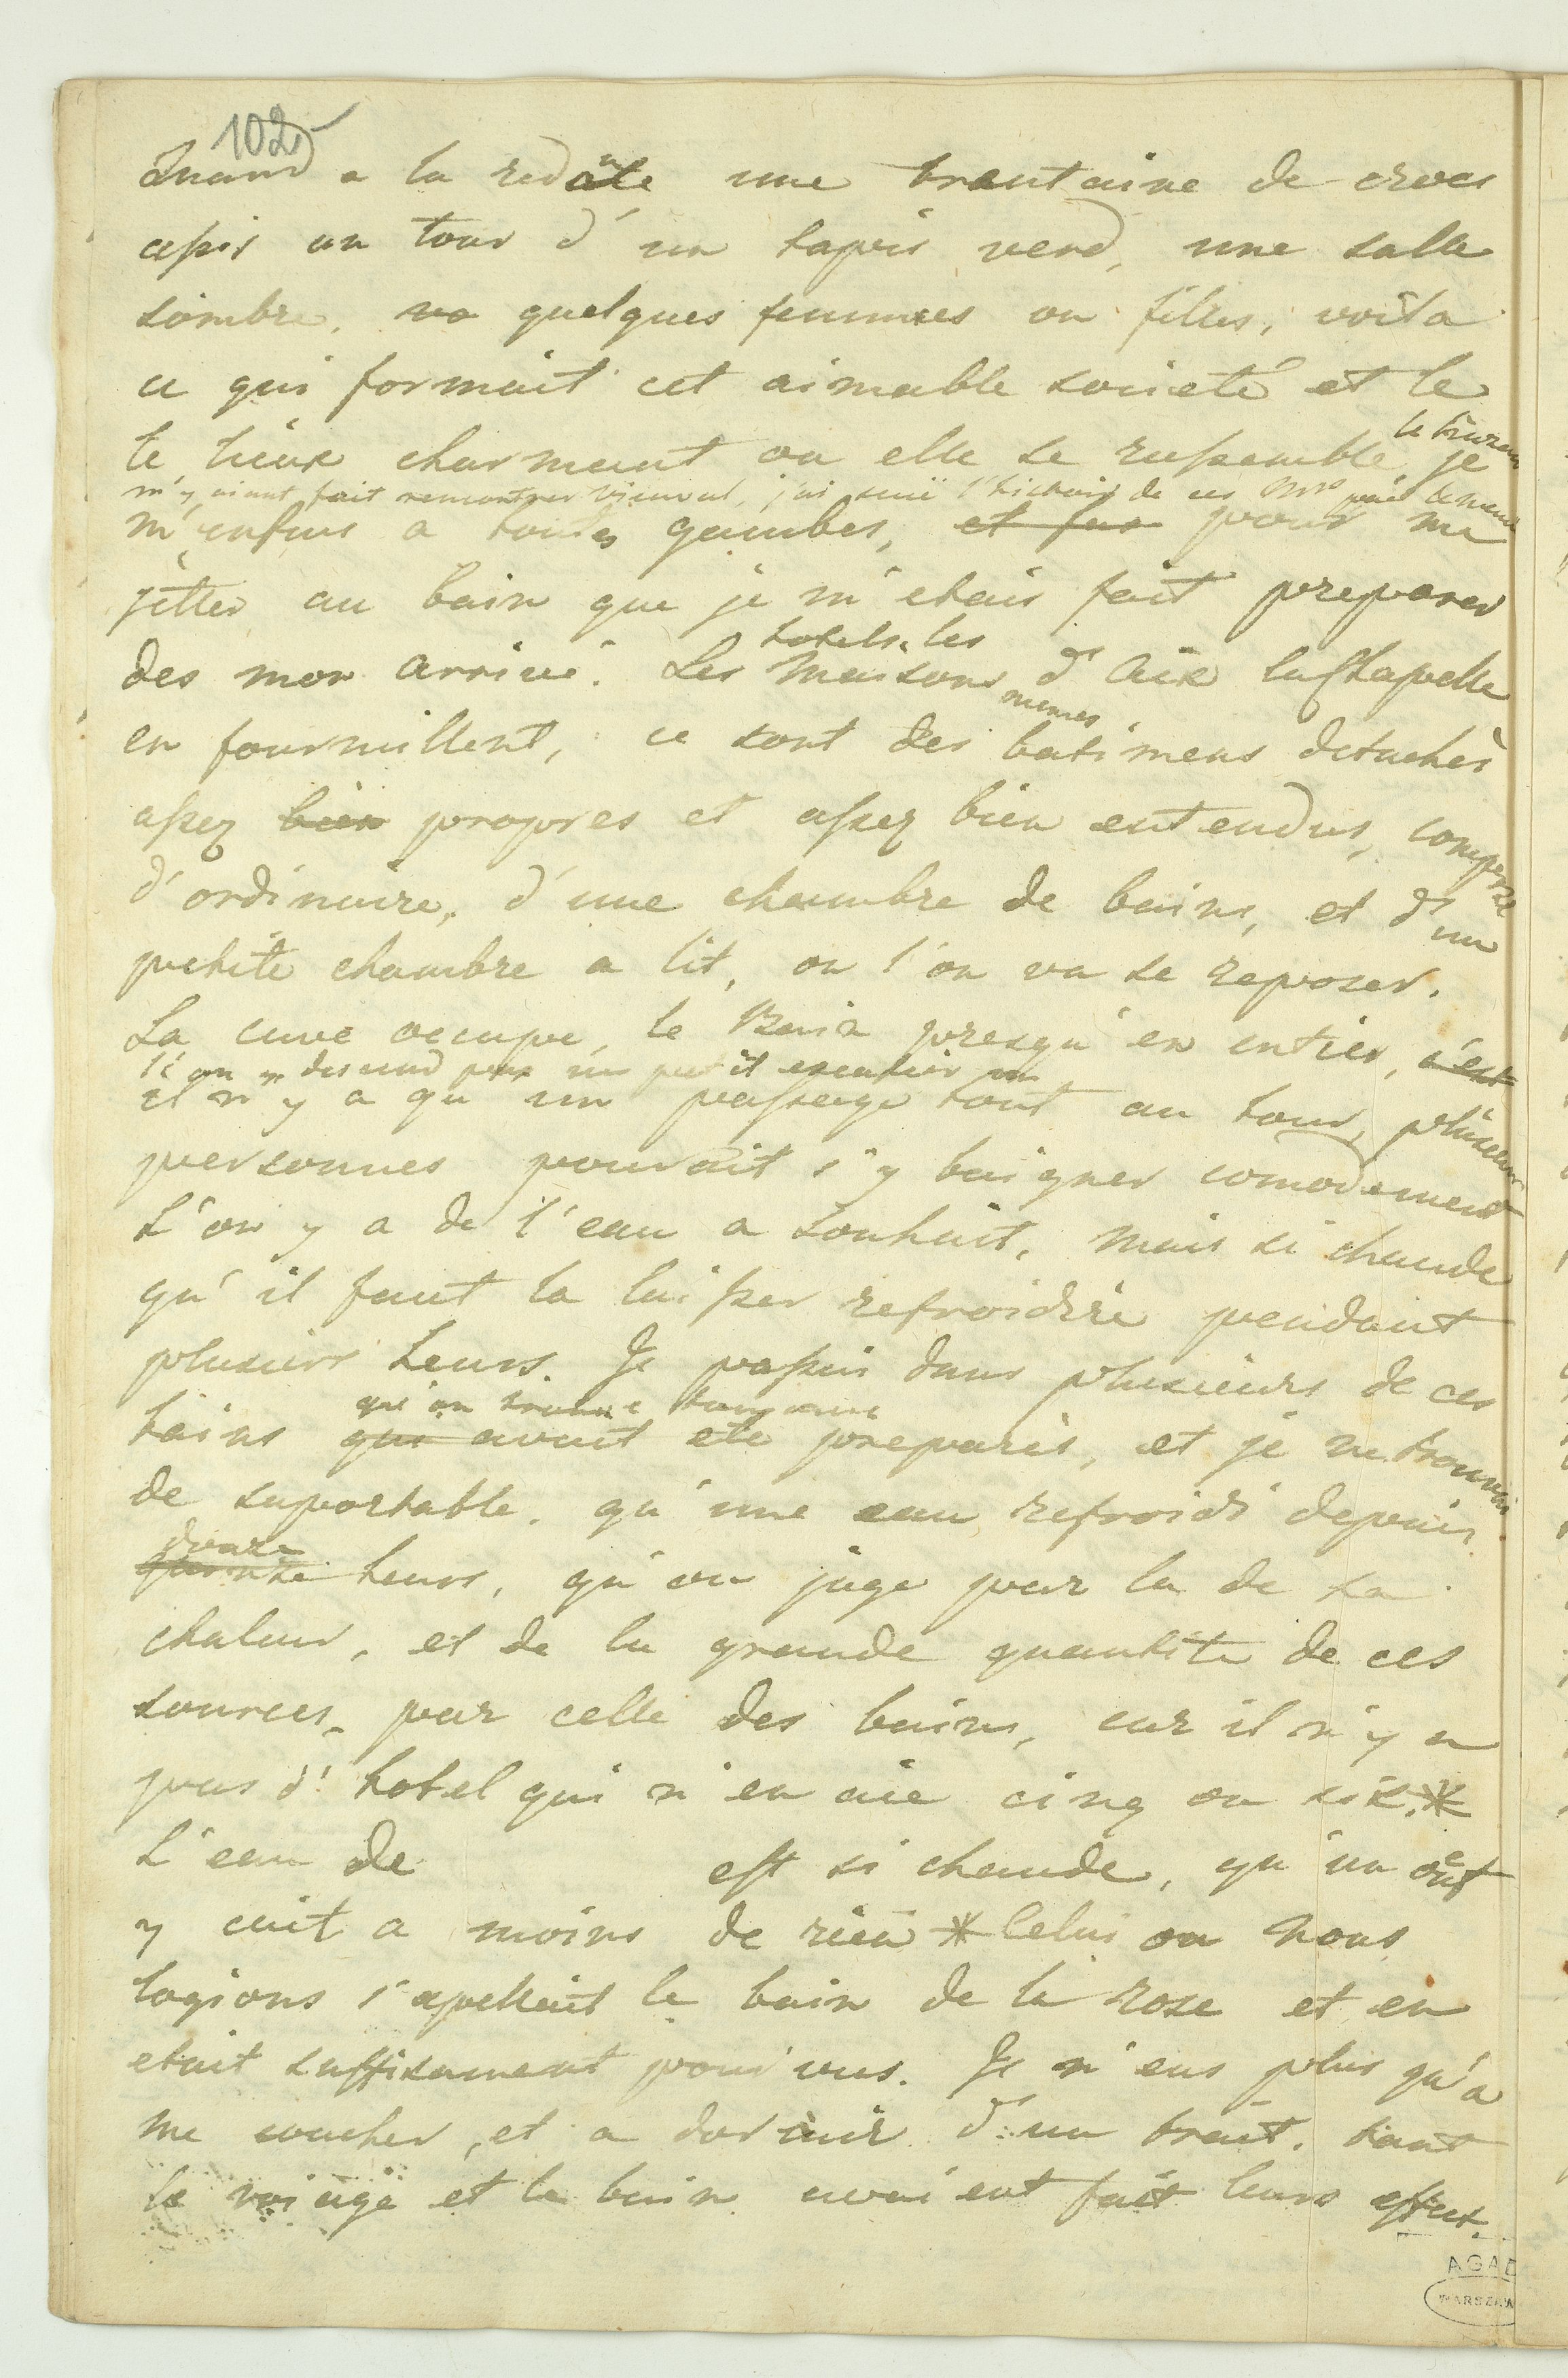 102
Quand a la redoute une trentaine de crocs
assis au tour d'un tapis verd, une salle
sombre, quelques femmes ou filles, voila
ce qui formait cet aimable societé et le
le lieux charmant ou elle se rassemble, je
m'y aiant fait rencontrer j'ai l'histoire de ces Mrs
m'enfuis a toutes gambes, et fus pour me
jetter au bain que je m'etais fait preparer
des mon arrivé. Les hotels, les maisons memes d'Aix laChapelle
en fourmillent, ce sont des batimens detachés
assez bien propres et assez bien entendus, compose
d'ordinaire, d'une chambre de bains, et d'un
petite chambre a lit, ou l'on va se reposer.
La cuve occupe, le Bain presqu'en entier, c'est
l'on y descend par un petit escalier
il n'y a qu'un passage tout au tour, plusieurs
personnes pourait s'y baigner comodement
L'on y a de l'eau a souhait, mais si chaude
qu'il faut la laisser refroidire pendant
plusieurs heurs. Je passai dans plusieurs de ces
qu'on trouve toujours
bains qui avait eté preparés, et je ne trouvai
de suportable, qu'une eau refroidi depuis
douze
heurs, qu'on juge par la de sa
chaleur, et de la grande quantite de ces
sources, par celle des bains, car il n'y a
pas d'hotel qui n'en aie cinq ou six.*
L'eau de est si chaude, qu'un oeuf
y cuit a moins de rien * Celui ou nous
logions s'apellait le bain de la rose et en
etait suffisament pourvus. Je n'eus plus qu'a
me coucher, et a dormir d'un trait, tant
le voiage et le bain avaient fait leurs effet.
AGAD
WARSZAWA